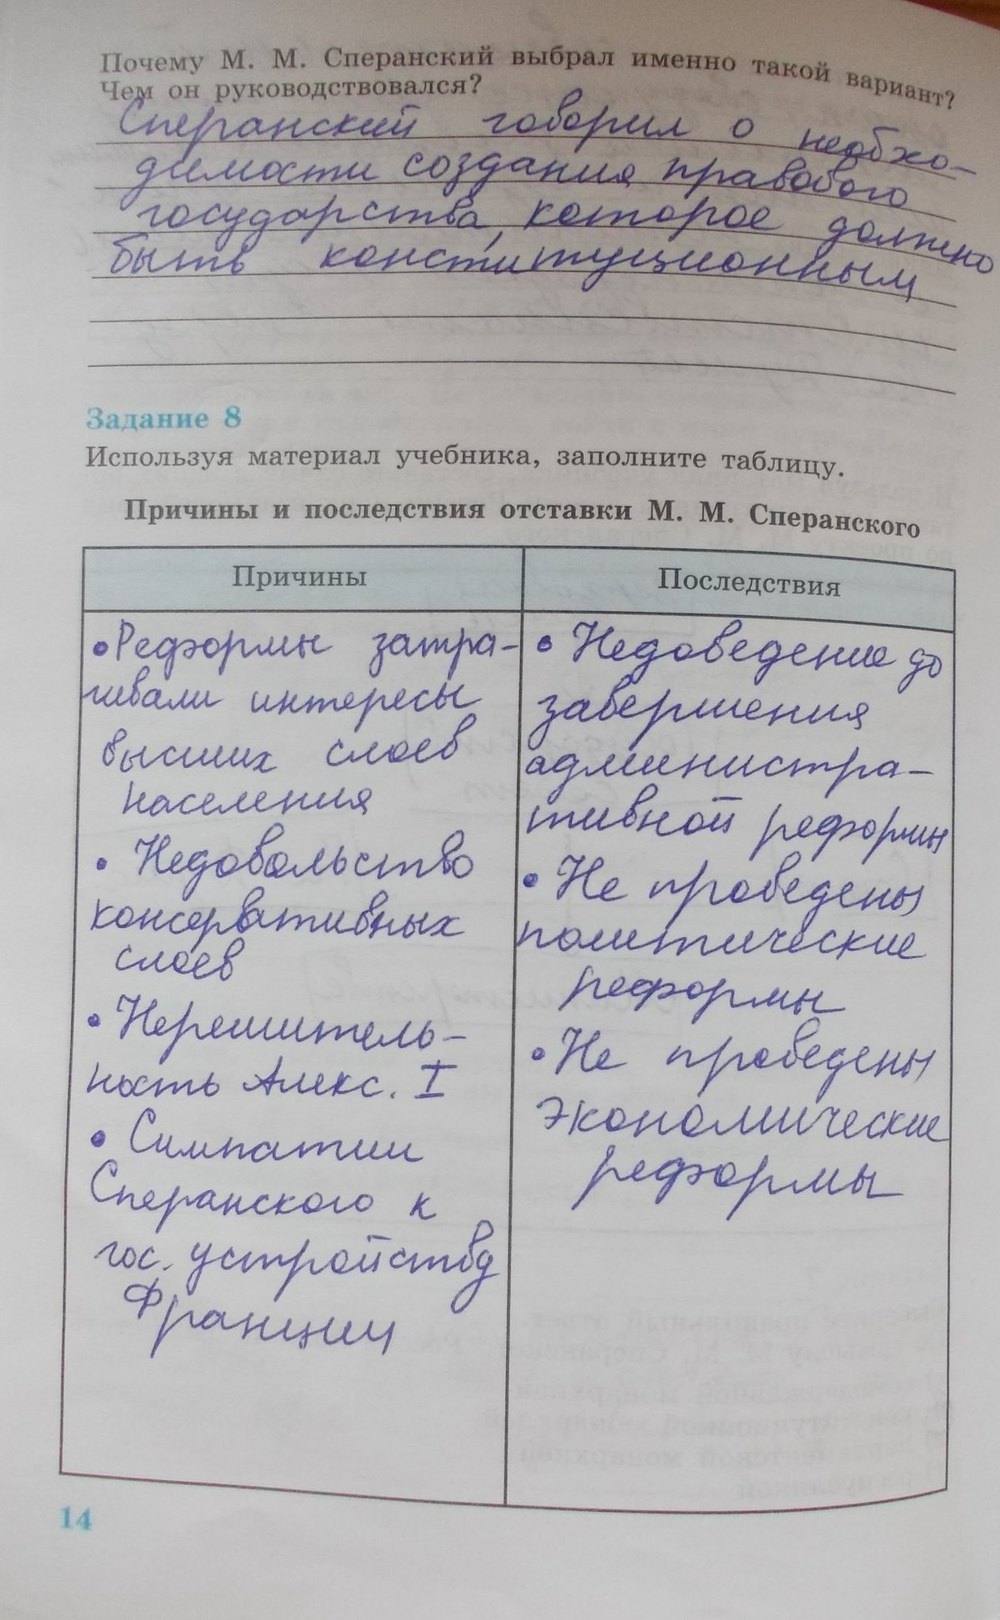 Почему М. М. Сперанский выбрал именно такой вариант?
Чем он руководствовался?
Сперанский говорил о необхо-
димости создания правового
государства, которое должно
быть конституционным
Задание 8
Используя материал учебника, заполните таблицу.
Причины и последствия отставки М. М. Сперанского
Причины
• Реформы затра-
гивали интересы
высших слоев
населения
• Недовольство
консервативных
слоев
• Нерешитель-
ность Алекс. I
• Симпатии
Сперанского к
гос. устройству
Франции
Последствия
• Недоведение до
завершения
администра-
тивной реформы
• Не проведены
политические
реформы
• Не проведены
экономические
реформы
14